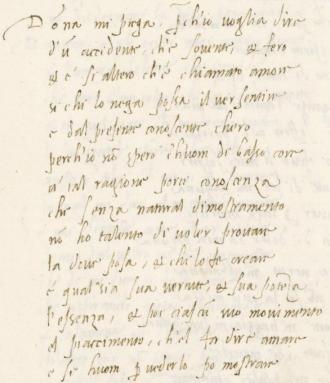 Dōna mi priega, ꝑch'io voglia dire
d'ū accidente, ch'è sovente, et fero
et è si altero ch'è chiamato amore
si chi lo nega possa il ver sentire
e dal presente conoscente chero
perch'io nō spero c'huom de basso core
a' tal ragione porti conoscenza
che senza natural dimostramento
nō ho talento di voler provare
la dove posa, et chi lo fe creare
è qual sia sua vertute, et sua potēza
l'essenza, et poi ciascū suo movimento
el piacimento, ch'el fa dire amare
e se huom ꝑ vederlo po mostrare